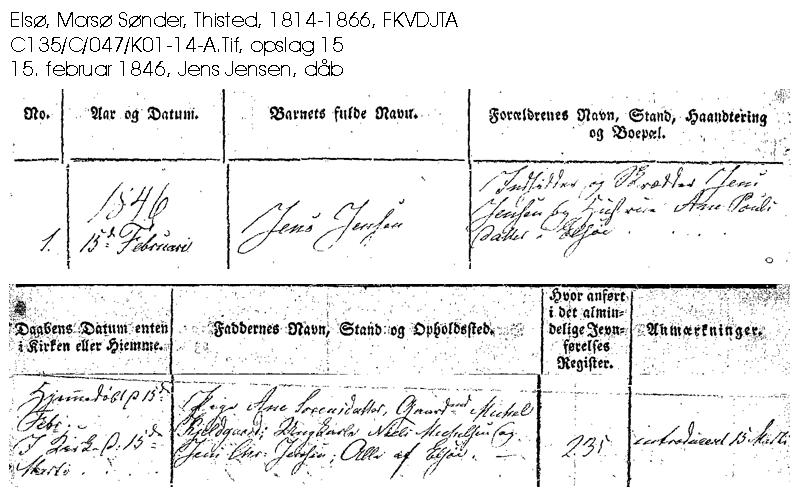 Elsø, Morsø Sønder, Thisted, 1814-1866, FKVDJTA
C135/C/047/K01-14-A.Tif, opslag 15
15. februar 1846, Jens Jensen, dåb
No. Aar og Datum. Barnets fulde Navn. Forældrenes Navn, Stand, Haandtering
og Boepæl.
1846 Indsidder og Skrædder Jens
Jens Jensen Jensen og Hustrue Ane Pouls
1. 15d Februari Datter i Elsøe
Daabens Datum enten
i Kirken eller Hiemme.
Faddernes Navn, Stand og Opholdssted.
Hvor anført
i det almin-
delige Jevn-
førelses
Register.
Anmærkninger.
Hjemmedøbt d. 15d
Febr.
I Kirk. d. 15d
Marti
Pige Ane Sørensdatter, Gaardmand Michel
Ungkarle Niels Michelsen og
Jens Chr. Jensen; Alle af Elsøe.
235
introduceret 15 Marti